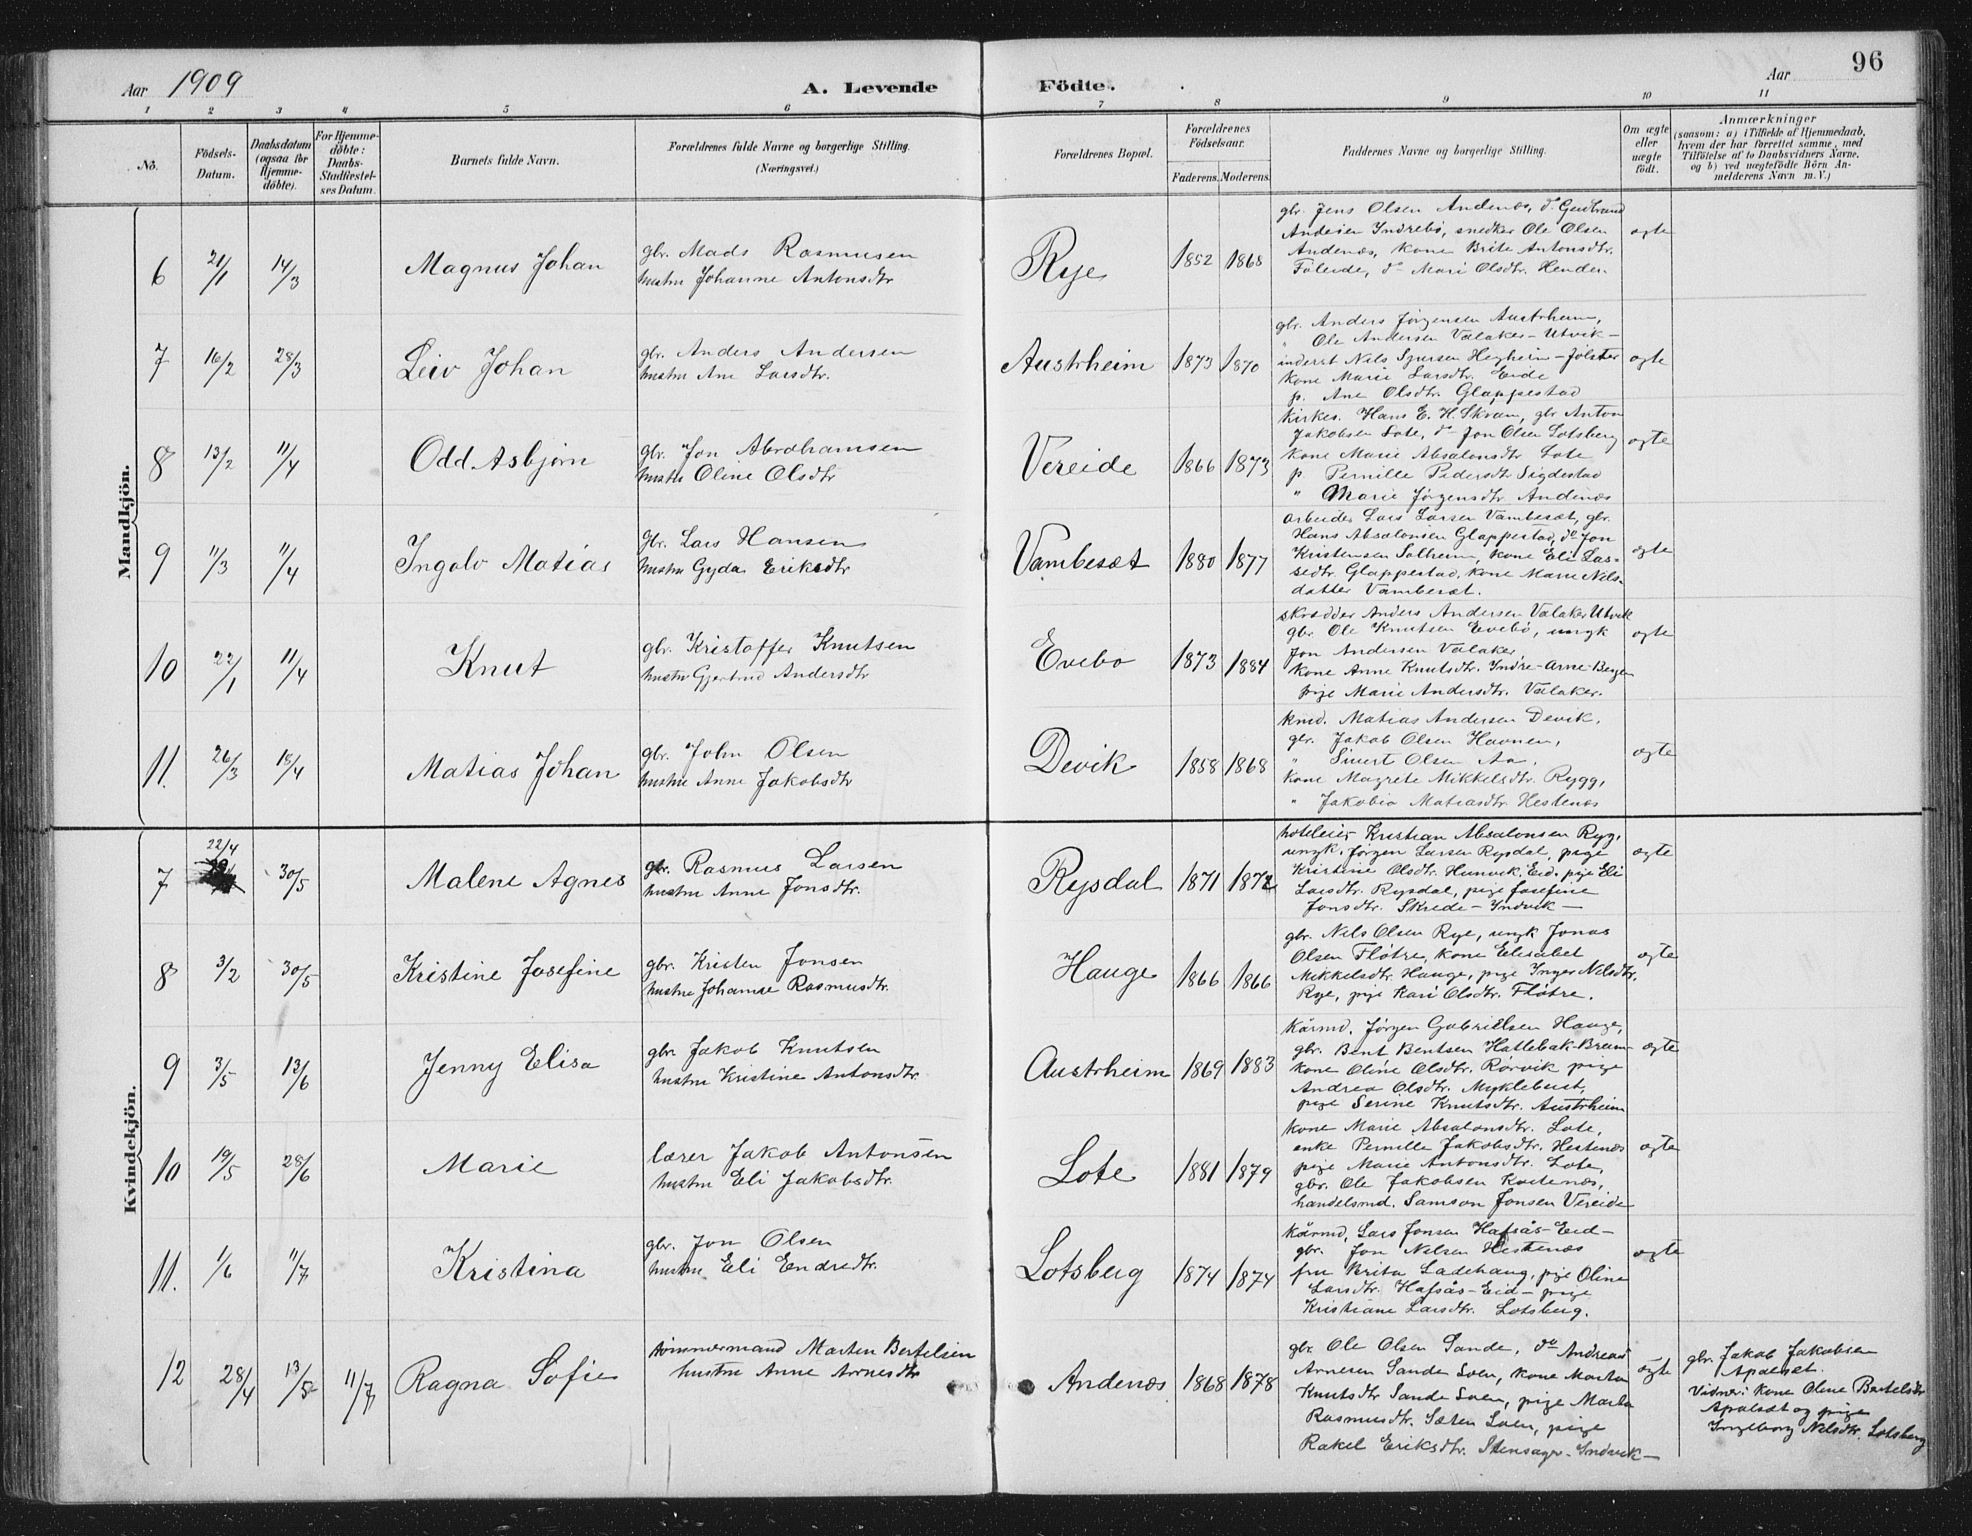 Aar 1909
A. Levende Födte.
Aar
96
1 2 3 4 5 6 7 8 9 10 11
No.
Födsels-Datum.
Daabsdatum (ogsaa for Hjemme-döbte).
For Hjemme-döbte: Daabs-Stadfæstel-ses Datum.
Barnets fulde Navn.
Forældrenes fulde Navne og borgerlige Stilling. (Næringsvei.)
Forældrenes Bopæl.
Forældrenes Födselsaar.
Faderens. Moderens.
Faddernes Navne og borgerlige Stilling.
Om ægte eller uægte födt.
Anmærkninger
(saasom: a) i Tilfælde af Hjemmedaab,
hvem der har forrettet samme, med
Tilföielse af to Daabsvidners Navne,
og b) ved uægtefödte Börn An-
melderens Navn m. V.)
Mandkjön.
6 21/1 14/3 Magnus Johan
gbr. Mads Rasmusen
hustru Johanne Antonsdtr
Rye 1852 1868
gbr. Jens Olsen Andenæs, do Gudbrand
Andersen Indrebø, snedker Ole Olsen
Andenæs, kone Brite Antonsdtr.
Faleide, do Mari Olsdtr. Henden
ægte
7 16/2 28/3 Leiv Johan
gbr. Anders Andersen
hustru Ane Larsdtr.
Austrheim 1873 1870
gbr. Anders Jørgensen Austrheim,
" Ole Andersen Valaker - Utvik -
inderst Nels Sjursen Hegheim - Jølster
kone Marie Larsdtr. Eide
p. Ane Olsdtr. Glappestad
ægte
8 13/2 11/4 Odd Asbjørn
gbr. Jon Abrahamsen
hustru Oline Olsdtr
Vereide 1866 1873
kirkes. Hans E. H. Skram, gbr Anton
Jakobsen Lote, do Jon Olsen Lotsberg
kone Marie Absalonsdtr Lote
p. Pernille Pedersdtr Sigdestad
" Marie Jørgensdtr Andenæs
ægte
9 11/3 11/4 Ingolv Matias
Gbr. Lars Hansen
hustru Gyda Eriksdtr
Vambesæt 1880 1877
arbeider Lars Larsen Vambesæt, gbr.
Hans Absalonsen Glappestad, do Jon
Kristensen Solheim, kone Eli Las-
sedtr. Glappestad, kone Marie Nils-
datter Vambesæt.
ægte
10 22/1 11/4 Knut
gbr. Kristoffer Knutsen
hustru Gjertrud Andersdtr
Evebø 1873 1884
skrædder Anders Andersen Valaker Utvik
gbr. Ole Knutsen Evebø, ungk
Jon Andersen Valaker,
kone Anne Knutsdtr. Indre-Arne-Bergen
pige Marie Andersdtr. Valaker.
ægte
11. 26/3 18/4 Matias Johan
gbr. John Olsen
hustru Anne Jakobsdtr
Devik 1858 1868
kmd. Matias Andersen Devik,
gbr. Jakob Olsen Havnen,
" Sivert Olsen Aa,
kone Magrete Mikkelsdtr. Rygg,
" Jakobia Matiasdtr. Hestenæs
ægte
Kvindekjön.
7 22/4 30/5 Malene Agnes
gbr. Rasmus Larsen
hustru Anne Jonsdtr.
Rysdal 1871 1872
hoteleier Kristian Absalonsen Ryg,
ungk. Jørgen Larsen Rysdal, pige
Kristine Olsdtr. Hunvik, Eid, pige Eli
Larsdtr. Rysdal, pige Josefine
Jonsdtr. Skrede - Indvik -
ægte
8 3/2 30/5 Kristine Josefine
gbr. Kristen Jonsen
hustru Johanne Rasmusdtr.
Hauge 1866 1866
gbr. Nels Olsen Rye, ungk Jonas
Olsen Fløtre, kone Elisabet
Mikkelsdtr. Hauge, pige Inger Nilsdtr.
Rye, pige Kari Olsdtr. Fløtre.
ægte
9 3/5 13/6 Jenny Elisa
gbr. Jakob Knutsen
hustru Kristine Antonsdtr.
Austrheim 1869 1883
kårmd. Jørgen Gabrielsen Hauge,
gbr. Bent Bentsen Hatlebak-Brem-
kone Oline Olsdtr. Rørvik pige
Andrea Olsdtr. Myklebust,
pige Serine Knutsdtr. Austrheim
ægte
10 19/5 28/6 Marie
lærer Jakob Antonsen
hustru Eli Jakobsdtr.
Lote 1881 1879
kone Marie Absalonsdtr. Lote,
enke Pernille Jakobsdtr. Hestenæs
pige Marie Antonsdtr. Lote,
gbr. Ole Jakobsen Kvitenæs,
handelsmd. Samson Jonsen Vereide
ægte
11. 1/6 11/7 Kristina
gbr. Jon Olsen
hustru Eli Endredtr.
Lotsberg 1874 1874
kårmd. Lars Jonsen Hafsås - Eid -
gbr. Jon Nelsen Hestenæs
fru Brita Ladehaug, pige Oline
Larsdtr. Hafsås - Eid - pige
Kristiane Larsdtr. Lotsberg.
ægte
12 28/4 13/5 11/7 Ragna Sofie
tømmermand Marten Bertelsen
hustru Anne Arnesdtr
Andenæs 1868 1878
gbr. Ole Olsen Sande, do Andreas
Arnesen Sande Loen, kone Marta
Knutsdtr Sande Loen, pige Marta
Rasmusdtr. Sæten Loen, pige
Rakel Eriksdtr. Stensager - Indvik -
ægte
gbr. Jakob Jakobsen
Apalset.
Vidner: kone Oline Bertelsdtr
Apalset og pige
Ingeborg Nilsdtr. Lotsberg